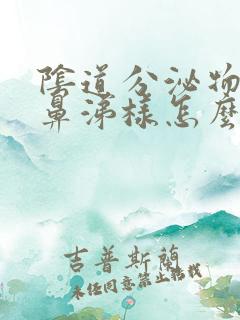 陰道分泌物
鼻涕樣怎麼
吉普斯蘭
未经同意禁止转载